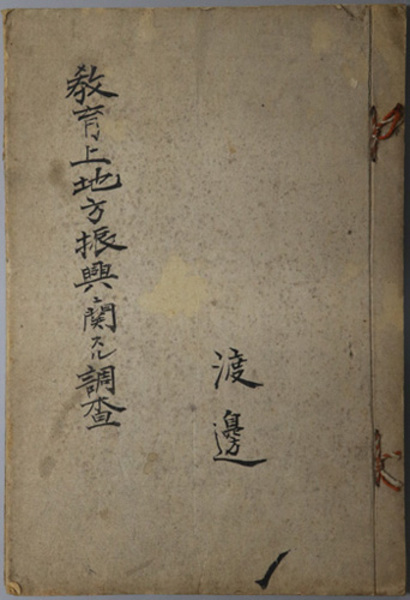 渡邊
教育上地方振興ニ関スル調査